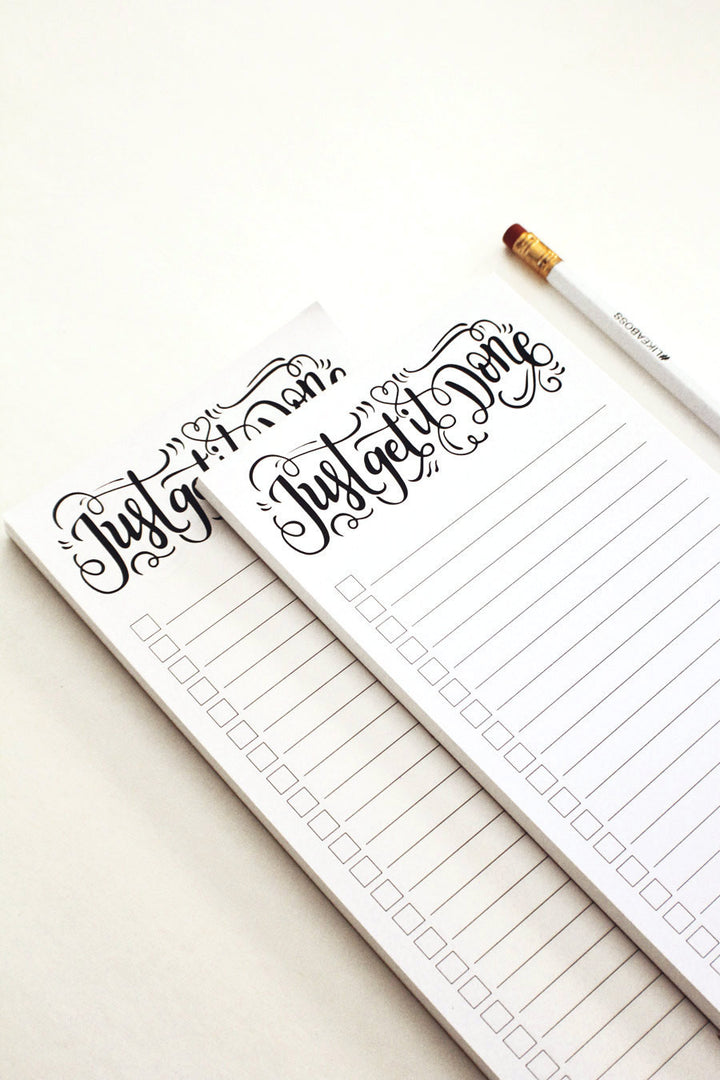 Just get it Done
Just get it Done
#LIKEABOSS